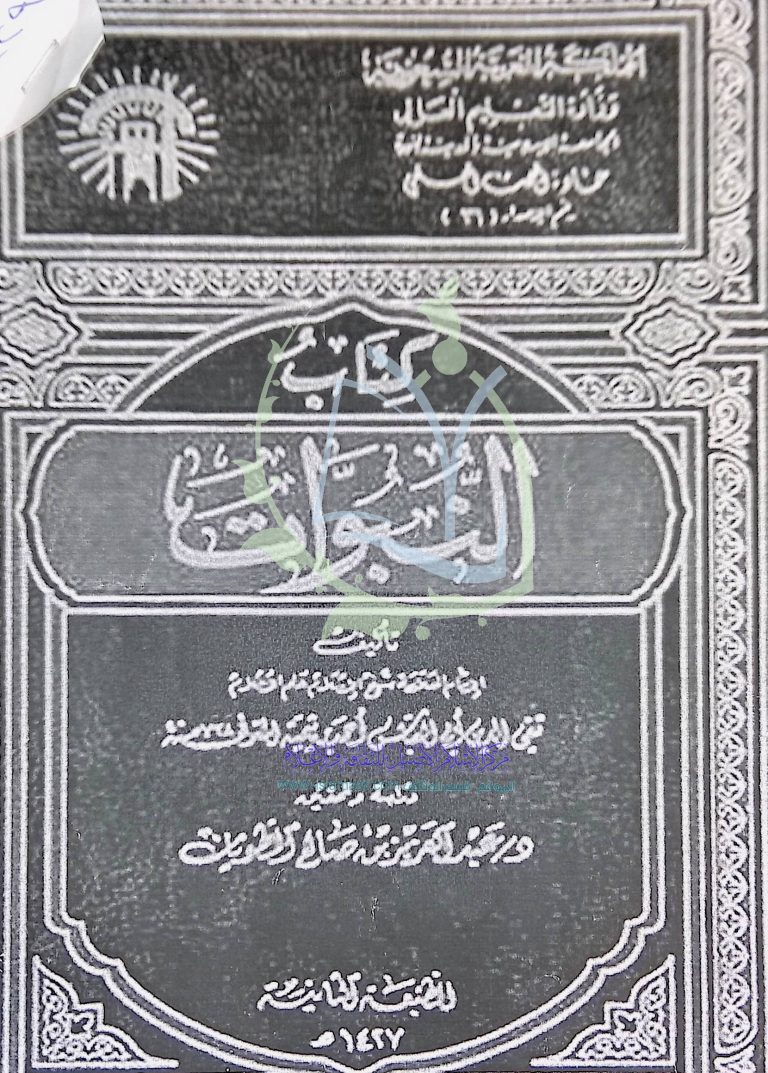 المملكة العربية السعودية
وزارة التعليم العالي
الجامعة الإسلامية بالمدينة المنورة
عمادة البحث العلمي
رقم الإصدار (٣٦)
كتاب
النبوات
تأليف
الإمام العلامة شيخ الإسلام
تقي الدين أبي العباس أحمد بن تيمية المتوفى ٧٢٨ سنة
مركز الإسلام الأصيل للثقافة والإعلام
دراسة وتحقيق
د/ عبد العزيز بن صالح الطويان
الطبعة الثانية
١٤٢٧ هـ